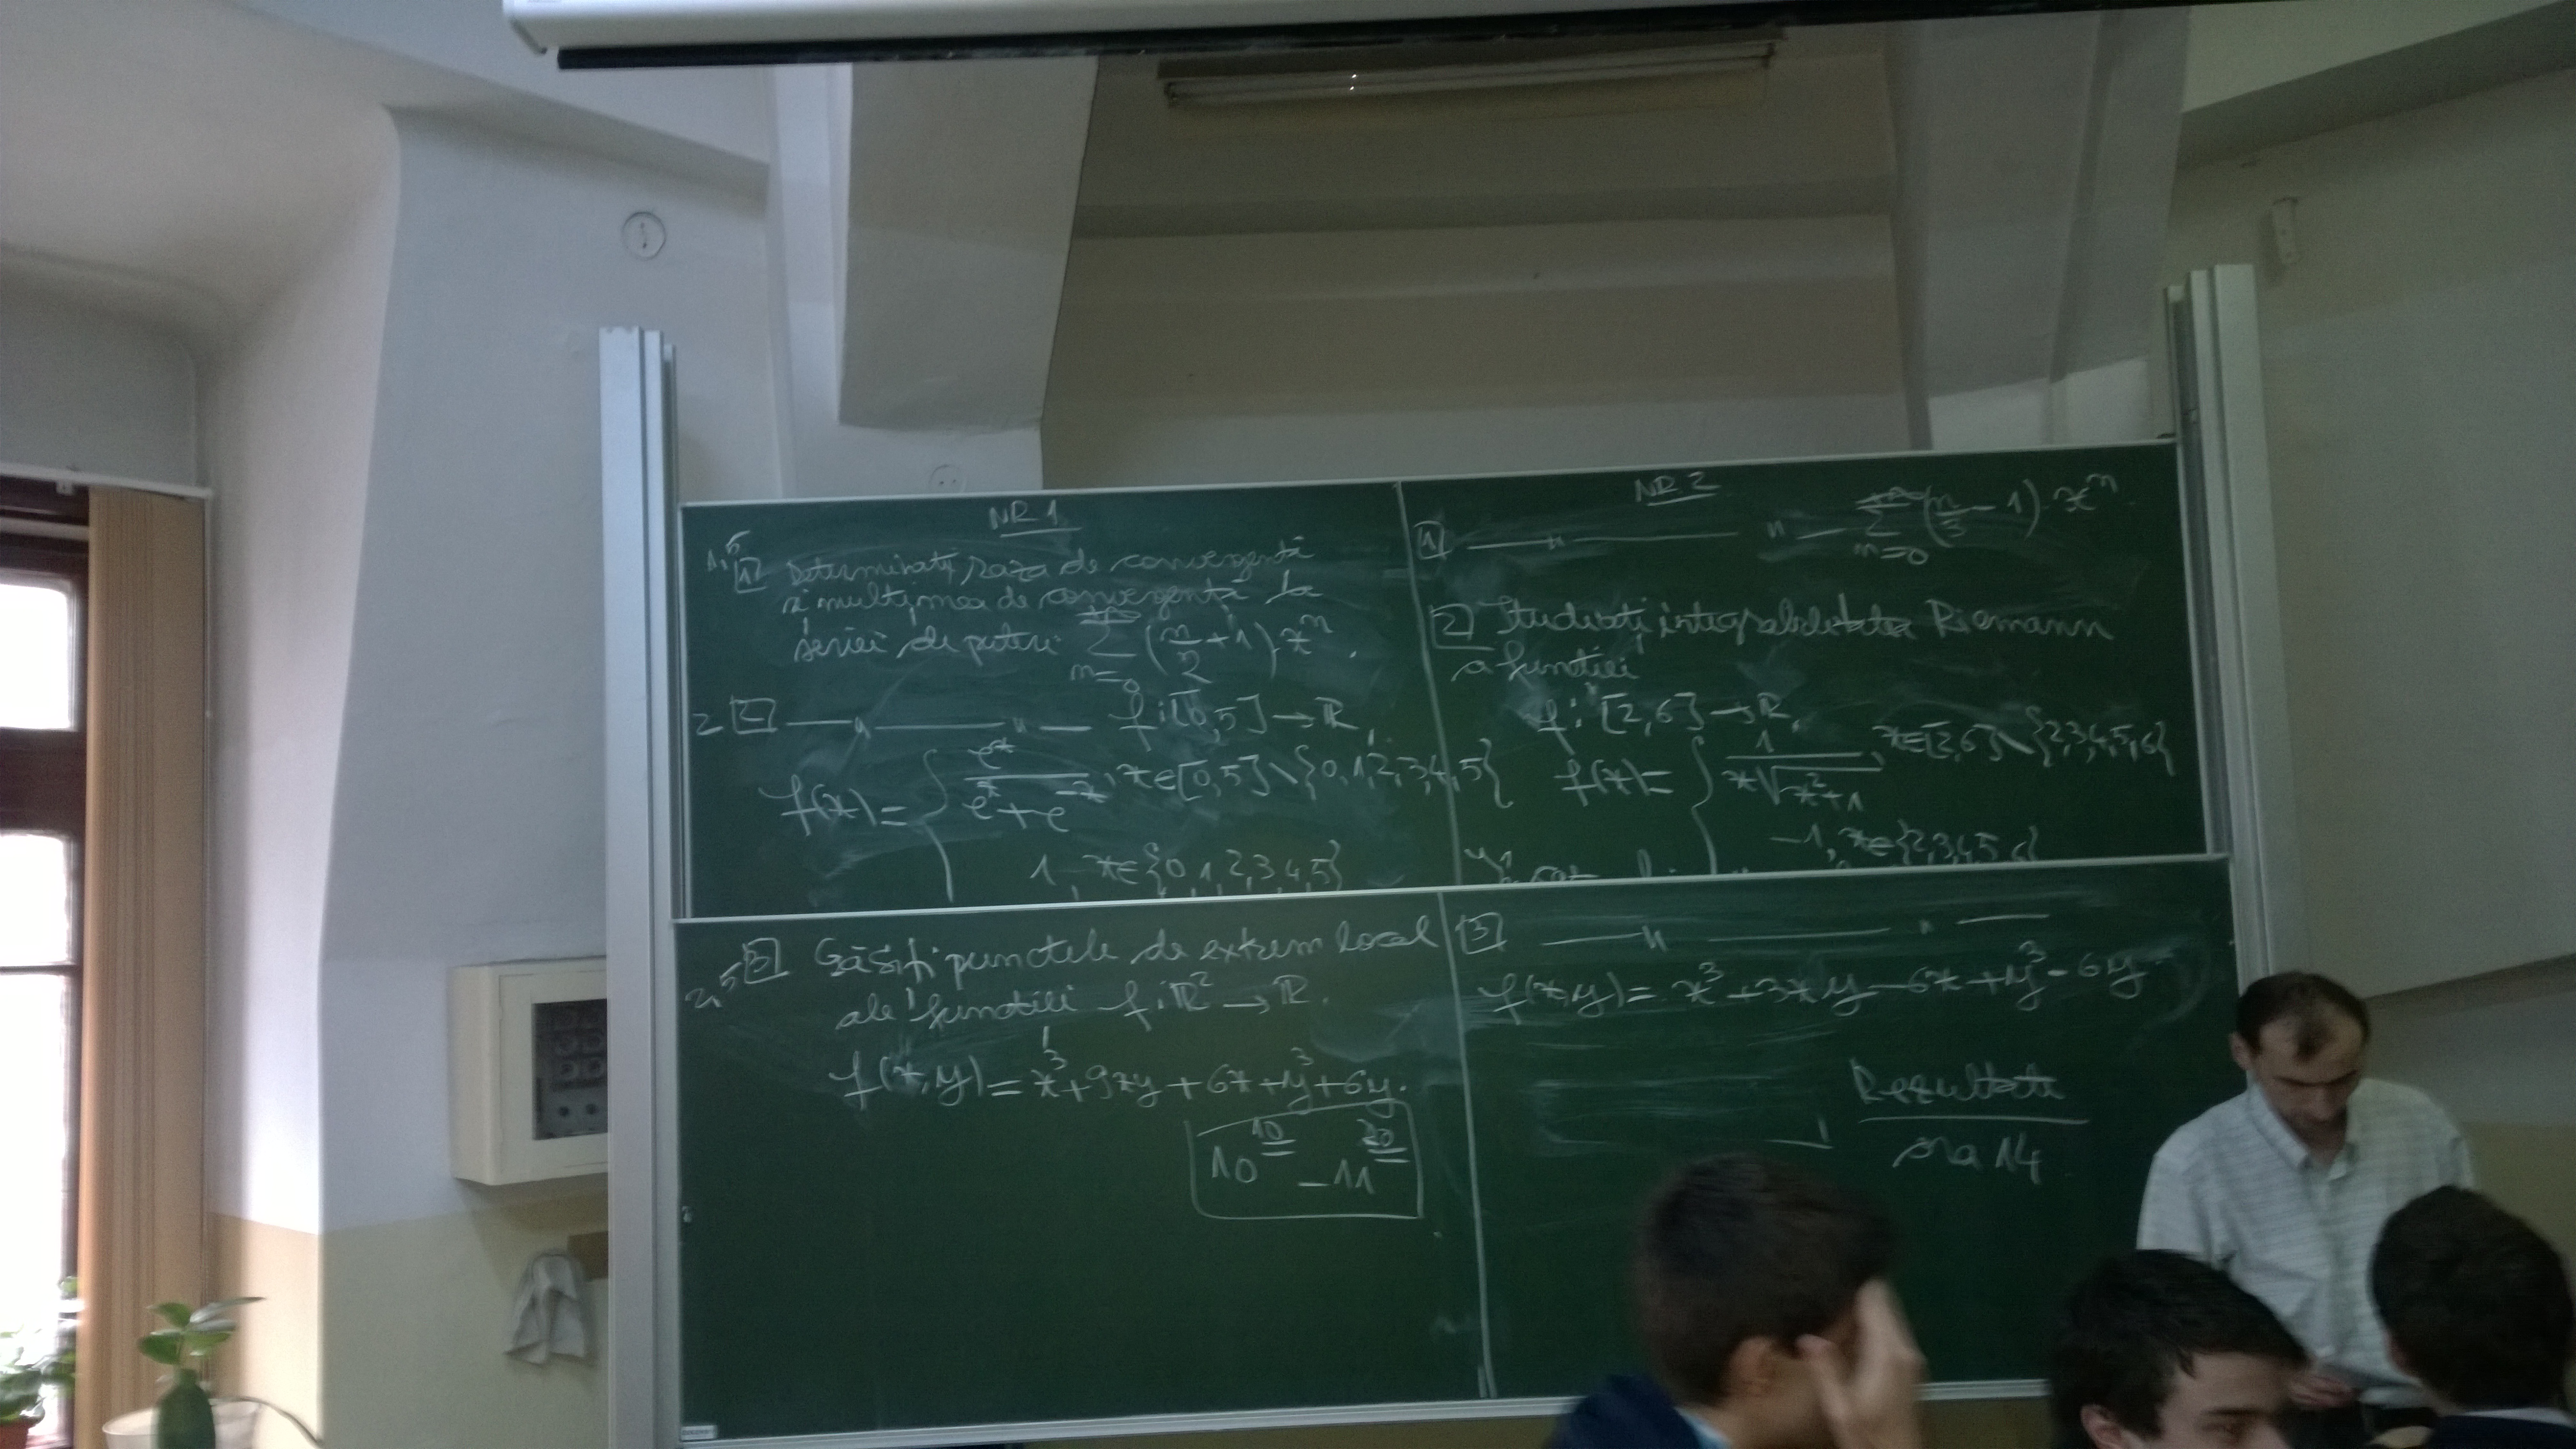 NR 1
1,5 1 Determinați raza de convergență
și mulțimea de convergență la
seriei de puteri +∞ Σ n=0 (n/2 + 1) x^n.
2 2 —〃——〃— f: [0,5] → ℝ,
f(x) = { e^x / (e^x + e^-x), x∈[0,5] \ {0,1,2,3,4,5}
1, x∈{0,1,2,3,4,5}
2,5 3 Găsiți punctele de extrem local
ale funcției f: ℝ² → ℝ.
f(x,y) = x³ + 9xy + 6x + y³ + 6y.
10^10 – 11^20
NR 2
1 —〃—— 〃 — +∞ Σ n=0 (n/3 - 1) · x^n.
2 Studiați integrabilitatea Riemann
a funcției
f: [2,6] → ℝ,
f(x) = { 1 / (x√(x²+1)), x∈[2,6] \ {2,3,4,5,6}
-1, x∈{2,3,4,5,6}
3 —〃——〃—
f(x,y) = x³ + 3xy - 6x + y³ - 6y
Rezultate
ora 14